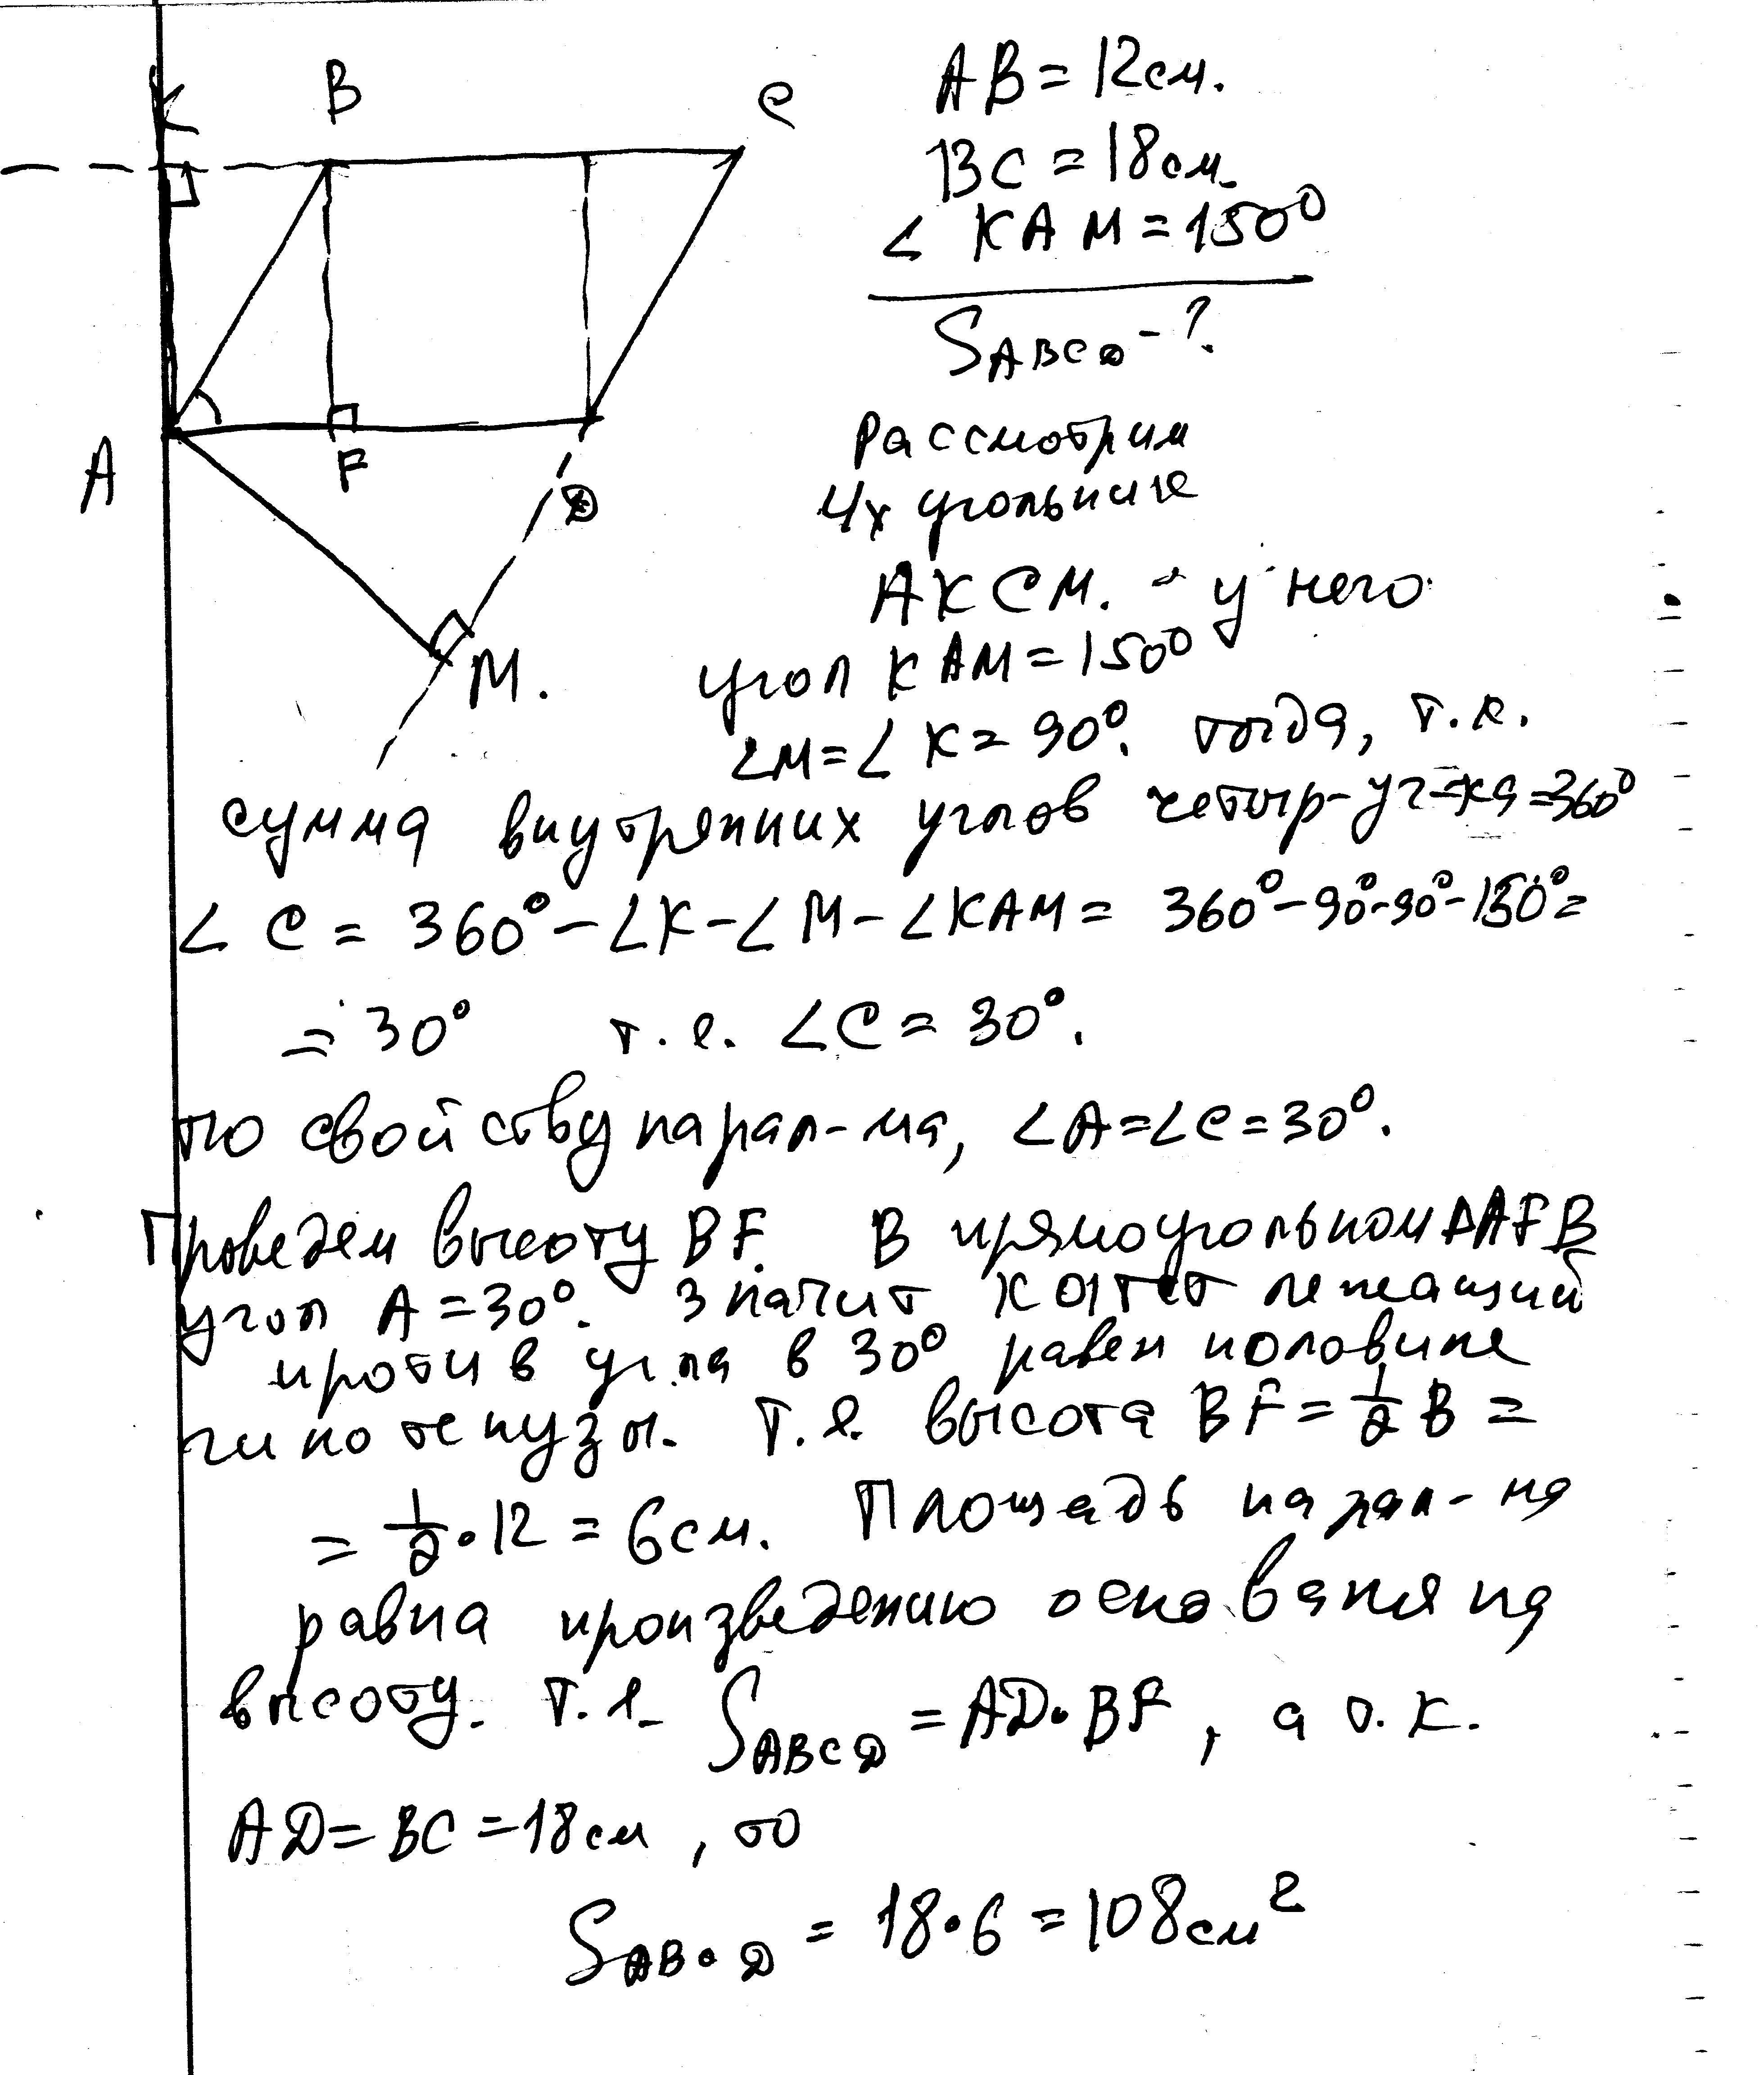 K
B
C
AB = 12см.
BC = 18см.
∠ KAM = 150⁰
S ABCD - ?
A
F
D
M.
Рассмотрим
4х угольник
AKCM. - у него
угол KAM = 150⁰
∠M = ∠K = 90⁰. тогда, т.к.
сумма внутренних углов четыр-уг-ка = 360⁰
∠ C = 360⁰ - ∠K - ∠M - ∠KAM = 360⁰ - 90⁰ - 90⁰ - 150⁰ =
= 30⁰ т.е. ∠C = 30⁰.
по свойству парал-ма, ∠A = ∠C = 30⁰.
Проведем высоту BF. В прямоугольном ΔAFB
угол A = 30⁰. Значит катет лежащий
против угла в 30⁰ равен половине
гипотенузы. Т.е. высота BF = 1/2 B =
= 1/2 • 12 = 6см. Площадь парал-ма
равна произведению основания на
высоту. Т.е. S ABCD = AD • BF, а т.к.
AD = BC = 18см, то
S ABCD = 18 • 6 = 108см²